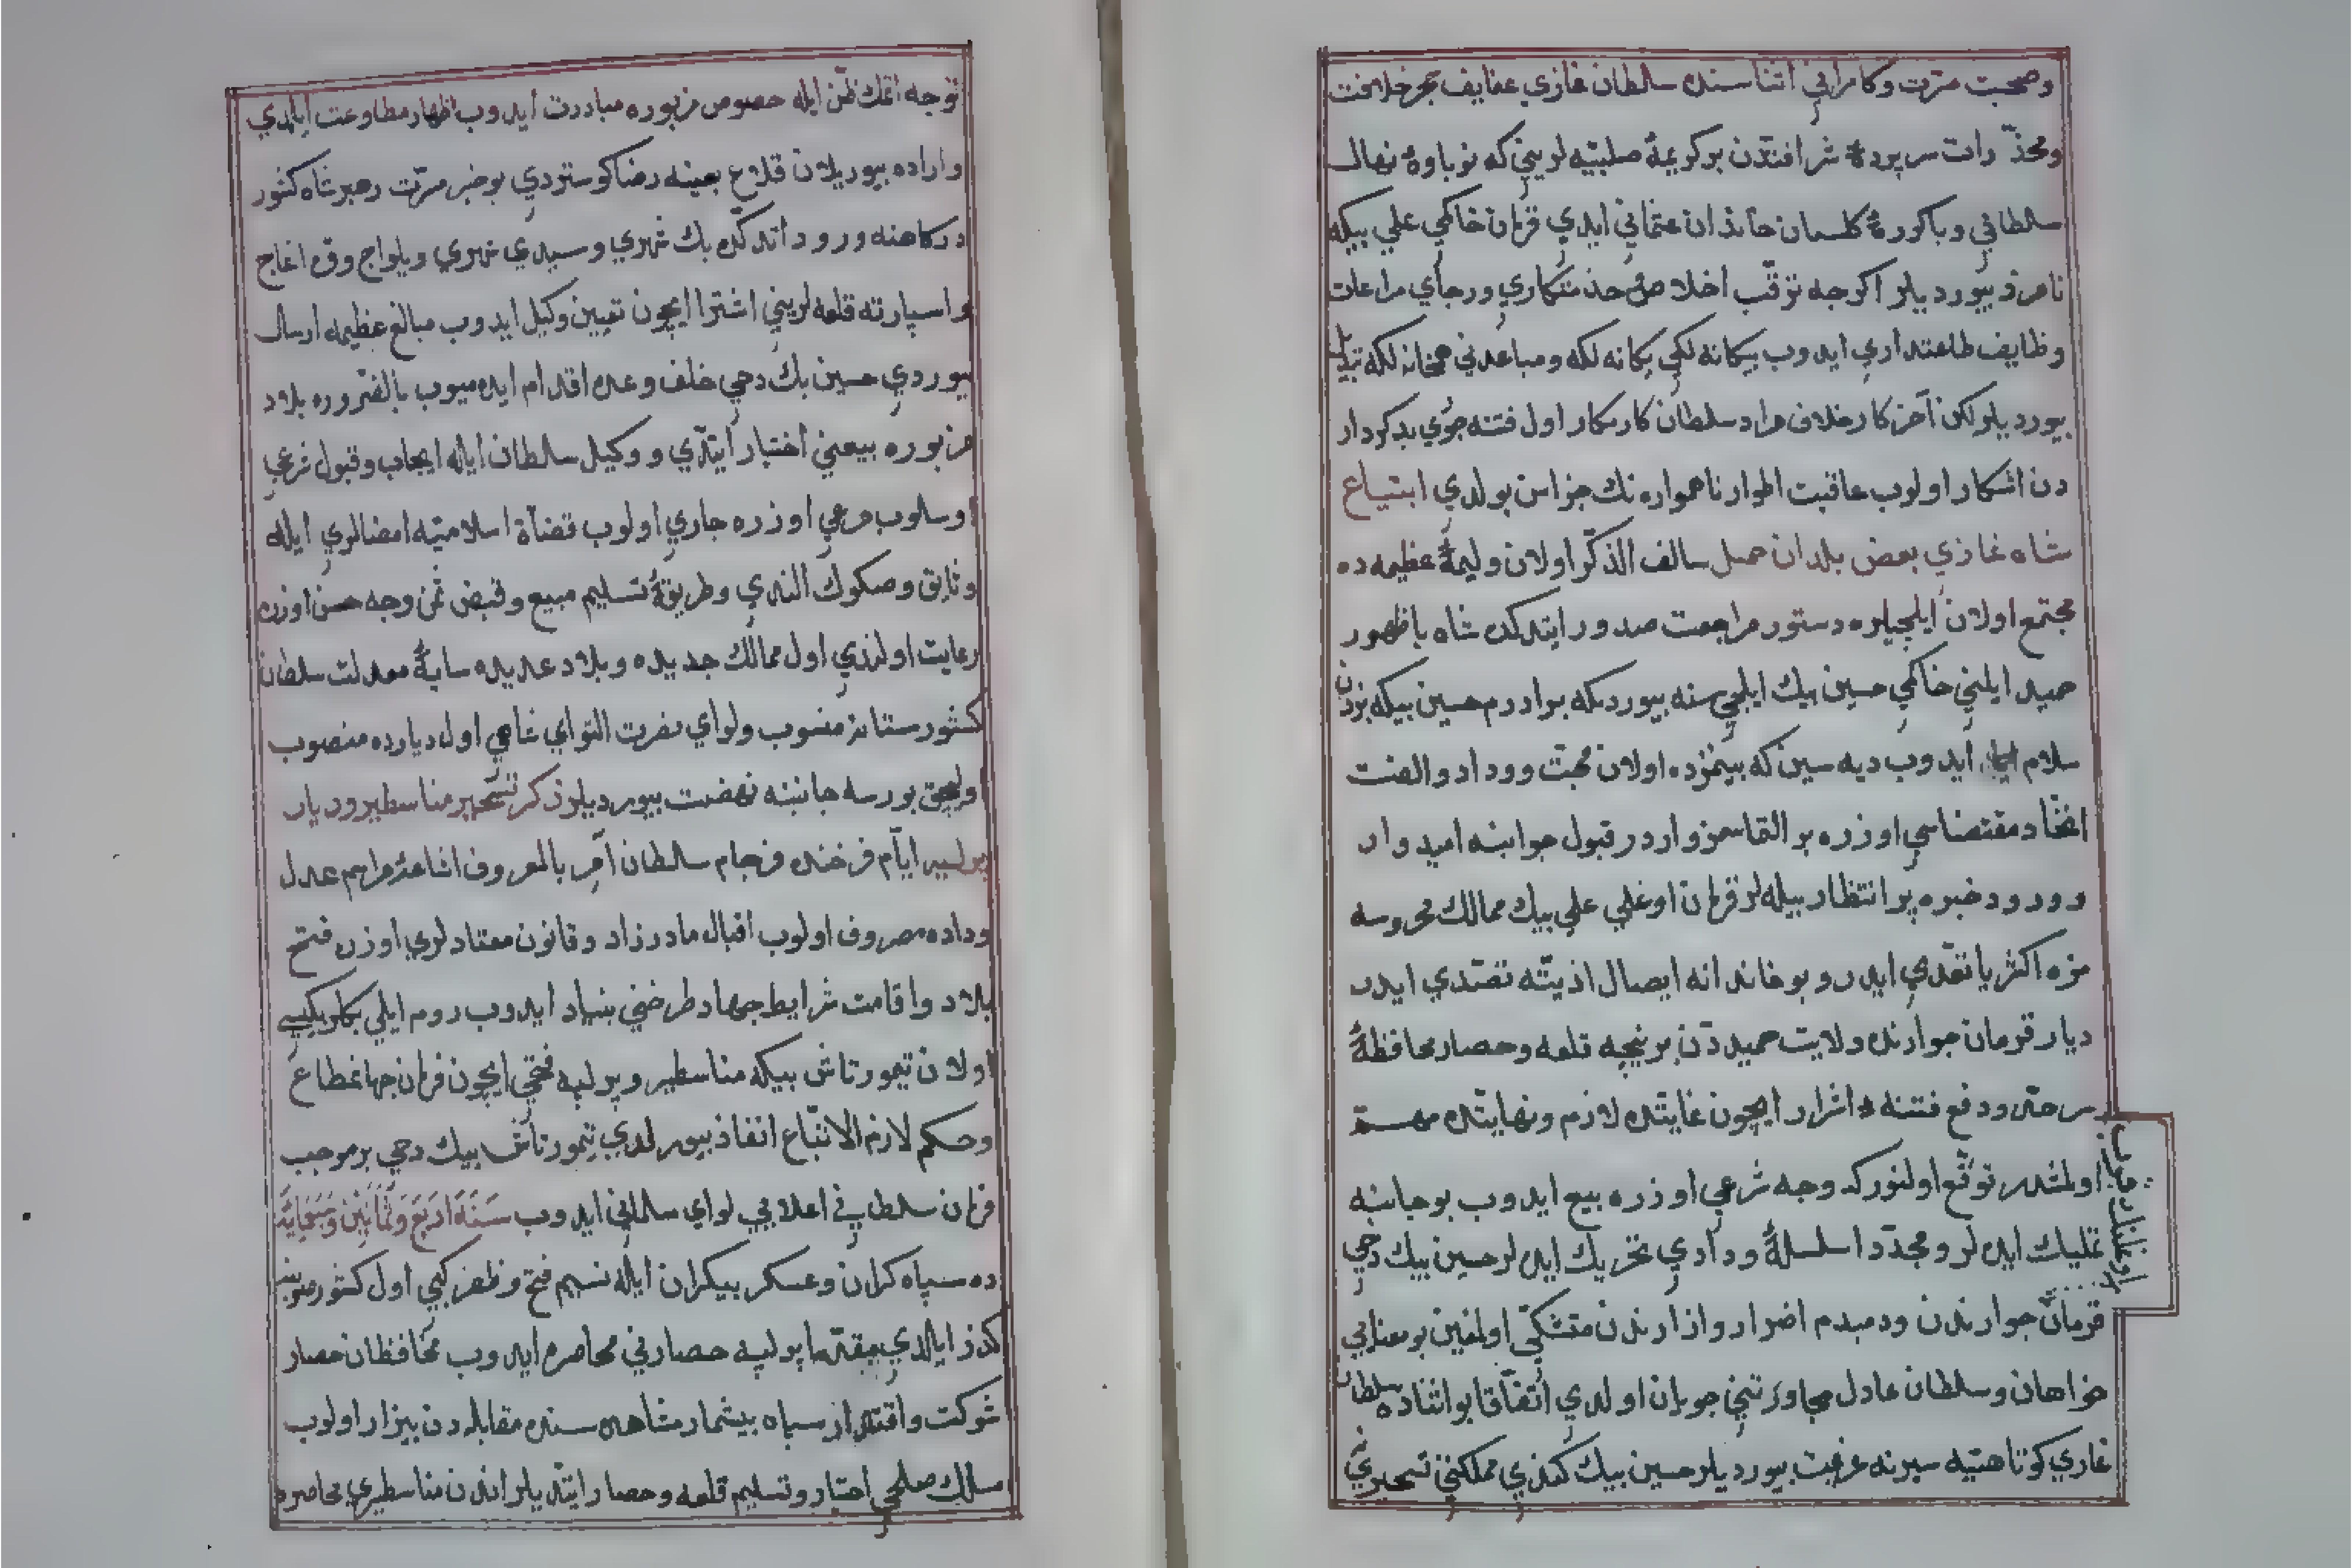 وصحبت مسرت وكامرانی اثناسنده سلطان غازی عفایف حجر خلافت
ومخدّرات سرپردهٔ شرافتدن بر كریمهٔ صلبیه لرینی كه نوباوهٔ نهال
سلطانی وباكورهٔ كلستان خاندان عثمانی ایدی قرمان حاكمی علی بیكه
نامزد بیوردیلر اكرچه ترقّب اخلاص خدمتكاری ورجای مراعات
وظایف طاعتداری ایدوب بیكانه لكی یكانه لكه ومباعدتی همخانه لكه تبدیل
بیوردیلر لكن آخر كار خلاف مراد سلطان كارمكار اول فتنه جوی بدكردار
دن اشكار اولوب عاقبت اطوار ناهمواره نك جزاسن بولدی ابتیاع
شاه غازی بعض بلدان حمید سالف الذكر اولان ولیمهٔ عظیمه ده
مجتمع اولان ایلچیلره دستور مراجعت صدور ایتدكده شاه باظهور
حمید ایلنی حاكمی حسین بیك ایلچی سنه بیوردیكه برادرم حسین بیكه بزدن
سلام ایدوب دیه سین كه بینمزده اولان محبت ووداد والفت
اتّحاد مقتضاسی اوزره بر التماسمز واردر قبول جوابنه امیدوار
وورود خبره پر انتظار بیله لر قرمان اوغلی علی بیك ممالك محروسه
مزه اكثریا تعدّی ایدر وبو خاندانه ایصال اذیّته تصدّی ایدر
دیار قرمان جوارنده ولایت حمیددن بر نیچه قلعه وحصار محافظهٔ
سرحد ودفع فتنهٔ اشرار ایچون غایتده لازم ونهایتده مهم
اولمشدر توقّع اولنوركه وجه شرعی اوزره بیع ایدوب بو جانبه
تملیك ایده لر ومجدّدا سلسلهٔ ودادی تحریك ایده لر حسین بیك دخی
قرمان اوغلنك جوارندن ودمبدم اضرار وازارندن متشكّی اولمغین بو معنایی
خواهان وسلطان عادل مجاورتنی جویان اولدی اتّفاقا بو اثناده سلطان
غازی كوتاهیه سیرنه عزیمت بیوردیلر حسین بیك كندی مملكتنی تسخیری
توجه اتمك ظنّ ایله خصوص مزبوره مبادرت ایدوب اظهار مطاوعت ایلدی
واراده بیوریلان قلاع بیعنه رضا كوستردی بو خبر مسرّت رهبر شاه كشور
دركاهنه ورود اتدكده بك شهری وسیدی شهری ویلواج وقره اغاج
واسپارته قلعه لرینی اشترا ایچون تعیین وكیل ایدوب مبالغ عظیمه ارسال
بیوردی حسین بك دخی خلف وعده اقدام ایده میوب بالضّروره بلاد
مزبوره بیعنی اختیار ایتدی ووكیل سلطان ایله ایجاب وقبول شرعی
اوسلوب مرعی اوزره جاری اولوب قضاة اسلامیّه امضالری ایله
وثایق وصكوك النمدی وطریقهٔ تسلیم مبیع وقبض ثمن وجه حسن اوزره
رعایت اولندی اول ممالك جدیده وبلاد عدیده سایهٔ معدلت سلطان
كشورستانه منسوب ولوای نصرت التوای شاهی اول دیارده منصوب
اولیجق بورسه جانبنه نهضت بیوردیلر ذكر تسخیر مناسطیر ودیار
پرلپه ایّام فرخنده فرجام سلطان آمر بالمعروف اشاعهٔ مراسم عدل
وداده مصروف اولوب اقبال مادرزاد وقانون معتادلری اوزره فتح
بلاد واقامت شرایط جهاد طرحنی بنیاد ایدوب روم ایلی بكلربكیسی
اولان تیمورتاش بیكه مناسطیر وپرلپه فتحی ایچون فرمان جهانمطاع
وحكم لازم الاتّباع انفاذ بیورلدی تیمورتاش بیك دخی بر موجب
فرمان سلطانی اعلایی لوای سلطانی ایدوب سَنَةَ اَرْبَعَ وَثَمَانِینَ وَسَبْعِمِائَه
ده سپاه كران وعسكر بیكران ایله نسیم فتح وظفر كبی اول كشور
كذر ایلدی مقدّما پرلپه حصارنی محاصره ایدوب محافظان حصار
شوكت واقتدار سپاه بیشمار مشاهده سنده مقابله دن بیزار اولوب
سالك صلحی اختیار وتسلیم قلعه وحصار ایتدیلر اندن مناسطیری محاصره